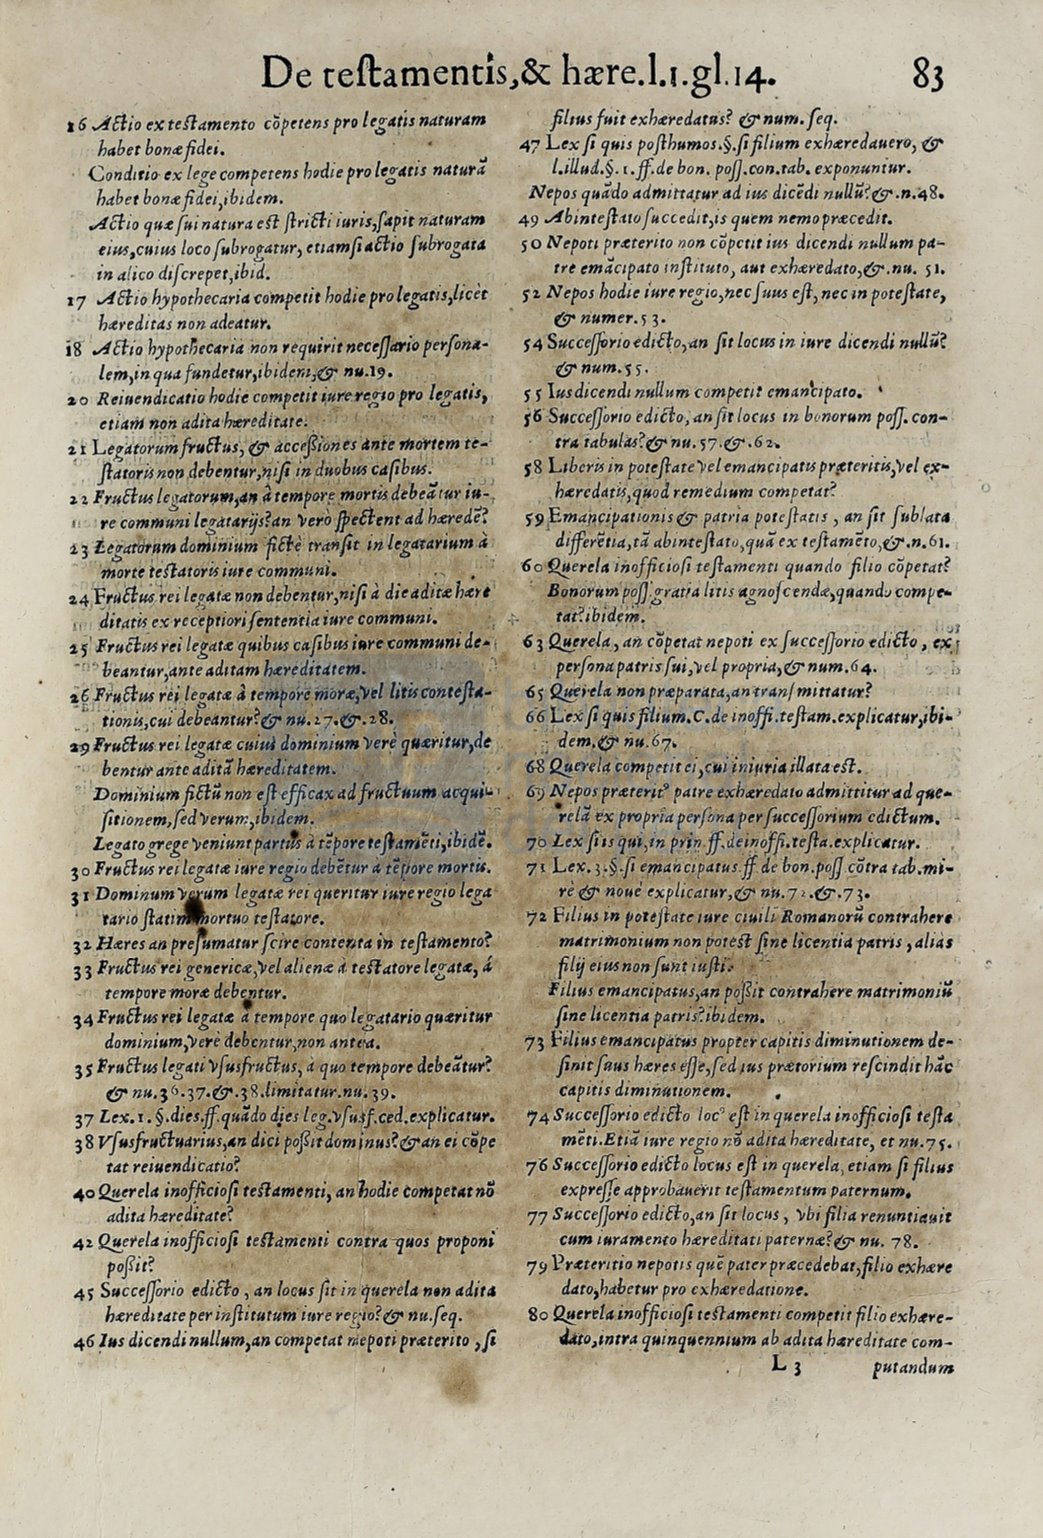 De testamentis,& hære.l.1.gl.14. 83
16 Actio ex testamento cõpetens pro legatis naturam
habet bonæ fidei.
Conditio ex lege competens hodie pro legatis naturã
habet bonæ fidei,ibidem.
Actio quæ sui natura est stricti iuris,sapit naturam
eius,cuius loco subrogatur, etiamsi actio subrogata
in alico discrepet,ibid.
17 Actio hypothecaria competit hodie pro legatis,licèt
hæreditas non adeatur.
18 Actio hypothecaria non requirit necessario persona-
lem,in qua fundetur,ibidem,& nu.19.
20 Reiuendicatio hodie competit iure regio pro legatis,
etiam non adita hæreditate.
21 Legatorum fructus, & accessiones ante mortem te-
statoris non debentur,nisi in duobus casibus.
22 Fructus legatorum,an à tempore mortis debeãtur iu-
re communi legatarijs?an verò spectent ad hæredẽ?
23 Legatorum dominium fictè transit in legatarium à
morte testatoris iure communi.
24 Fructus rei legatæ non debentur,nisi à die aditæ hære
ditatis ex receptiori sententia iure communi.
25 Fructus rei legatæ quibus casibus iure communi de-
beantur,ante aditam hæreditatem.
26 Fructus rei legatæ à tempore moræ,vel litis contesta-
tionis,cui debeantur?& nu.27.&.28.
29 Fructus rei legatæ cuius dominium verè quæritur,de
bentur ante aditã hæreditatem.
Dominium fictũ non est efficax ad fructuum acqui-
sitionem,sed verum,ibidem.
Legato grege veniunt partus à tẽpore testamẽti,ibidẽ.
30 Fructus rei legatæ iure regio debẽtur à tẽpore mortis.
31 Dominum verum legatæ rei queritur iure regio lega
tario statim mortuo testatore.
32 Hæres an presumatur scire contenta in testamento?
33 Fructus rei genericæ,vel alienæ à testatore legatæ, á
tempore moræ debentur.
34 Fructus rei legatæ à tempore quo legatario quæritur
dominium,verè debentur,non antea.
35 Fructus legati vsusfructus, à quo tempore debeãtur?
& nu.36.37.&.38.limitatur.nu.39.
37 Lex.1.§.dies.ff.quãdo dies leg.vsusf.ced.explicatur.
38 Vsusfructuarius,an dici possit dominus?& an ei cõpe
tat reiuendicatio?
40 Querela inofficiosi testamenti, an hodie competat nõ
adita hæreditate?
42 Querela inofficiosi testamenti contra quos proponi
possit?
45 Successorio edicto , an locus sit in querela non adita
hæreditate per institutum iure regio?& nu.seq.
46 Ius dicendi nullum,an competat nepoti præterito ,si
filius fuit exhæredatus? & num. seq.
47 Lex si quis posthumos.§.si filium exhæredauero, &
l.illud.§.1.ff.de bon. poss.con.tab. exponuntur.
Nepos quãdo admittatur ad ius dicẽdi nullũ?&.n.48.
49 Abintestato succedit,is quem nemo præcedit.
50 Nepoti præterito non cõpetit ius dicendi nullum pa-
tre emãcipato instituto, aut exhæredato,&.nu. 51.
52 Nepos hodie iure regio,nec suus est, nec in potestate,
& numer.53.
54 Successorio edicto,an sit locus in iure dicendi nullũ?
& num.55.
55 Ius dicendi nullum competit emancipato.
56 Successorio edicto, an sit locus in bonorum poss. con-
tra tabulas?& nu. 57.&.62.
58 Liberis in potestate vel emancipatis præteritis,vel ex-
hæredatis,quod remedium competat?
59 Emancipationis & patria potestatis , an sit sublata
differẽtia,tã abintestato,quã ex testamẽto,&.n.61.
60 Querela inofficiosi testamenti quando filio cõpetat?
Bonorum poss.gratia litis agnoscendæ,quando compe-
tat?ibidem.
63 Querela, an cõpetat nepoti ex successorio edicto , ex
persona patris sui,vel propria,& num.64.
65 Querela non præparata,an transmittatur?
66 Lex si quis filium.C.de inoffi.testam.explicatur,ibi-
dem.& nu.67.
68 Querela competit ei,cui iniuria illata est.
69 Nepos præteritꝰ patre exhæredato admittitur ad que-
relã ex propria persona per successorium edictum.
70 Lex si is qui,in prin.ff.de inoffi.testa.explicatur.
71 Lex.3.§.si emancipatus.ff.de bon.poss cõtra tab.mi-
rè & nouè explicatur,& nu.72.&.73.
72 Filius in potestate iure ciuili Romanorũ contrahere
matrimonium non potest sine licentia patris , aliàs
filij eius non sunt iusti.
Filius emancipatus,an possit contrahere matrimoniũ
sine licentia patris?ibidem.
73 Filius emancipatus propter capitis diminutionem de-
sinit suus hæres esse,sed ius prætorium rescindit hãc
capitis diminutionem.
74 Successorio edicto locꝰ est in querela inofficiosi testa
mẽti.Etiã iure regio nõ adita hæreditate, et nu.75.
76 Successorio edicto locus est in querela, etiam si filius
expresse approbauerit testamentum paternum.
77 Successorio edicto,an sit locus , vbi filia renuntiauit
cum iuramento hæreditati paternæ?& nu. 78.
79 Præteritio nepotis quẽ pater præcedebat,filio exhære
dato,habetur pro exhæredatione.
80 Querela inofficiosi testamenti competit filio exhære-
dato,intra quinquennium ab adita hæreditate com-
L 3 putandum